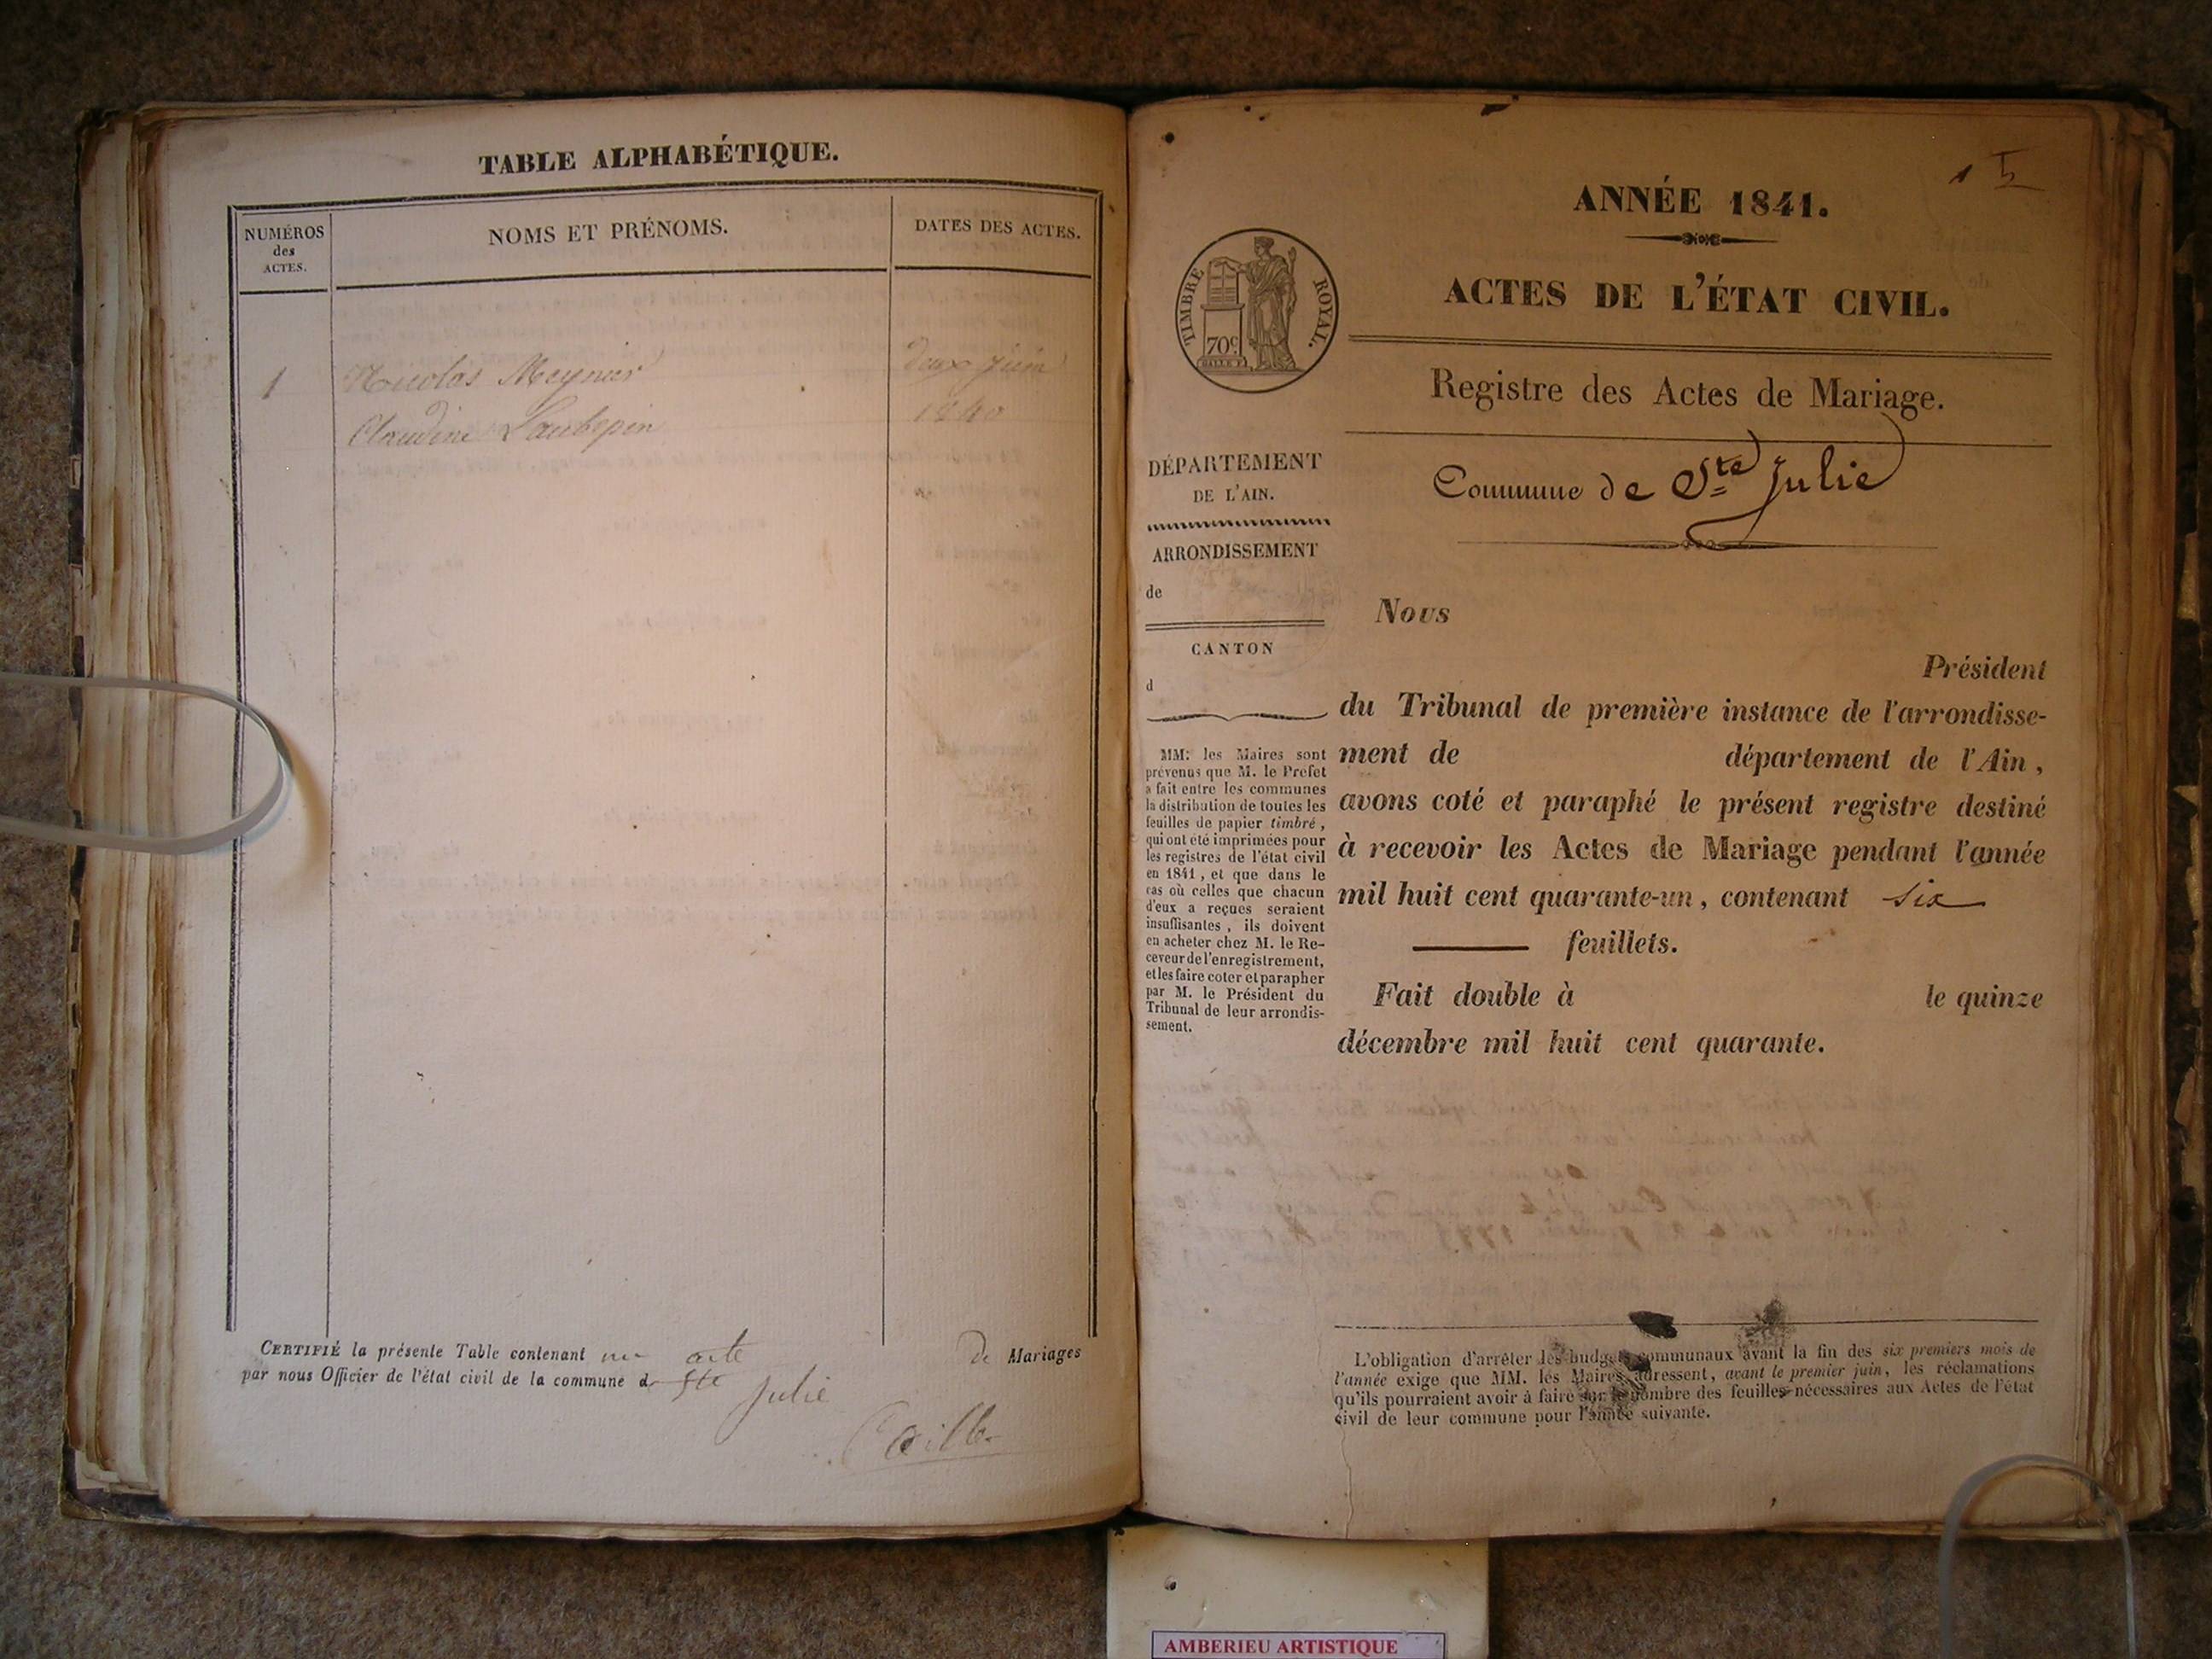 TABLE ALPHABÉTIQUE.
NUMÉROS
des
ACTES.
NOMS ET PRÉNOMS.
DATES DES ACTES.
1
Nicolas Meynier
deux juin
Claudine Laubepin
1840
CERTIFIÉ la présente Table contenant un acte de Mariages
par nous Officier de l'état civil de la commune d Ste
Julie
Caille
1
ANNÉE 1841.
ACTES DE L'ÉTAT CIVIL.
TIMBRE ROYAL.
70c
Registre des Actes de Mariage.
Commune de Ste Julie
DÉPARTEMENT
DE L'AIN.
ARRONDISSEMENT
de
CANTON
d
MM. les Maires sont
prévenus que M. le Préfet
a fait entre les communes
la distribution de toutes les
feuilles de papier timbré,
qui ont été imprimées pour
les registres de l'état civil
en 1841, et que dans le
cas où celles que chacun
d'eux a reçues seraient
insuffisantes, ils doivent
en acheter chez M. le Re-
ceveur de l'enregistrement,
et les faire coter et parapher
par M. le Président du
Tribunal de leur arrondis-
sement.
Nous
Président
du Tribunal de première instance de l'arrondisse-
ment de département de l'Ain,
avons coté et paraphé le présent registre destiné
à recevoir les Actes de Mariage pendant l'année
mil huit cent quarante-un, contenant six
feuillets.
Fait double à le quinze
décembre mil huit cent quarante.
L'obligation d'arrêter les budgets communaux avant la fin des six premiers mois de
l'année exige que MM. les Maires adressent, avant le premier juin, les réclamations
qu'ils pourraient avoir à faire sur le nombre des feuilles nécessaires aux Actes de l'état
civil de leur commune pour l'année suivante.
AMBERIEU ARTISTIQUE